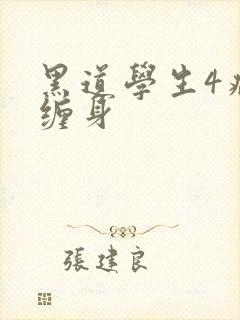 黑道學生4
缠身
張建良